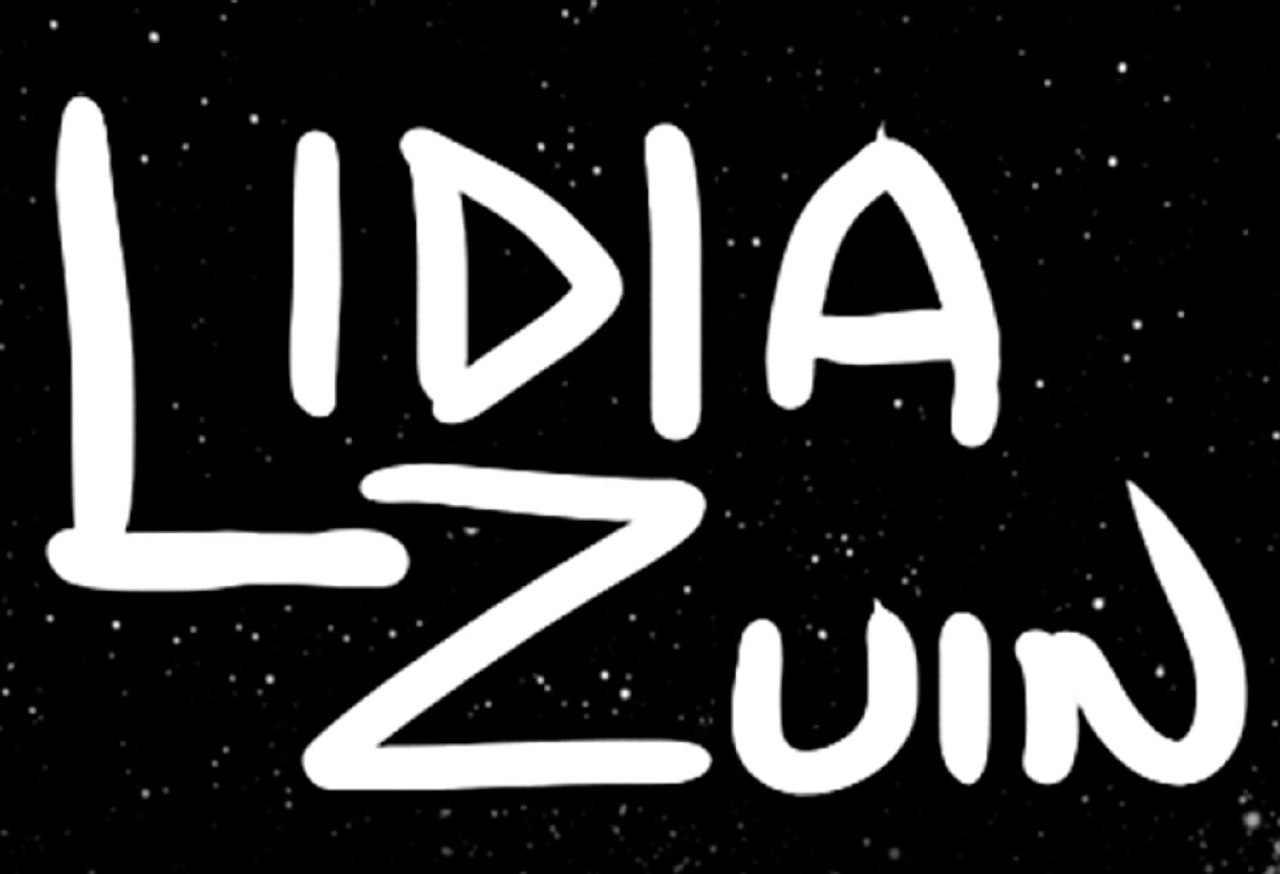 LIDIA
ZUIN